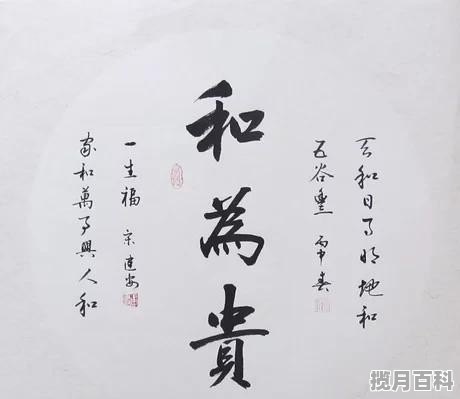 和為貴
天和日月明地和
五谷豐 丙申春
家和萬事興人和
一生福 宋連安
揽月百科